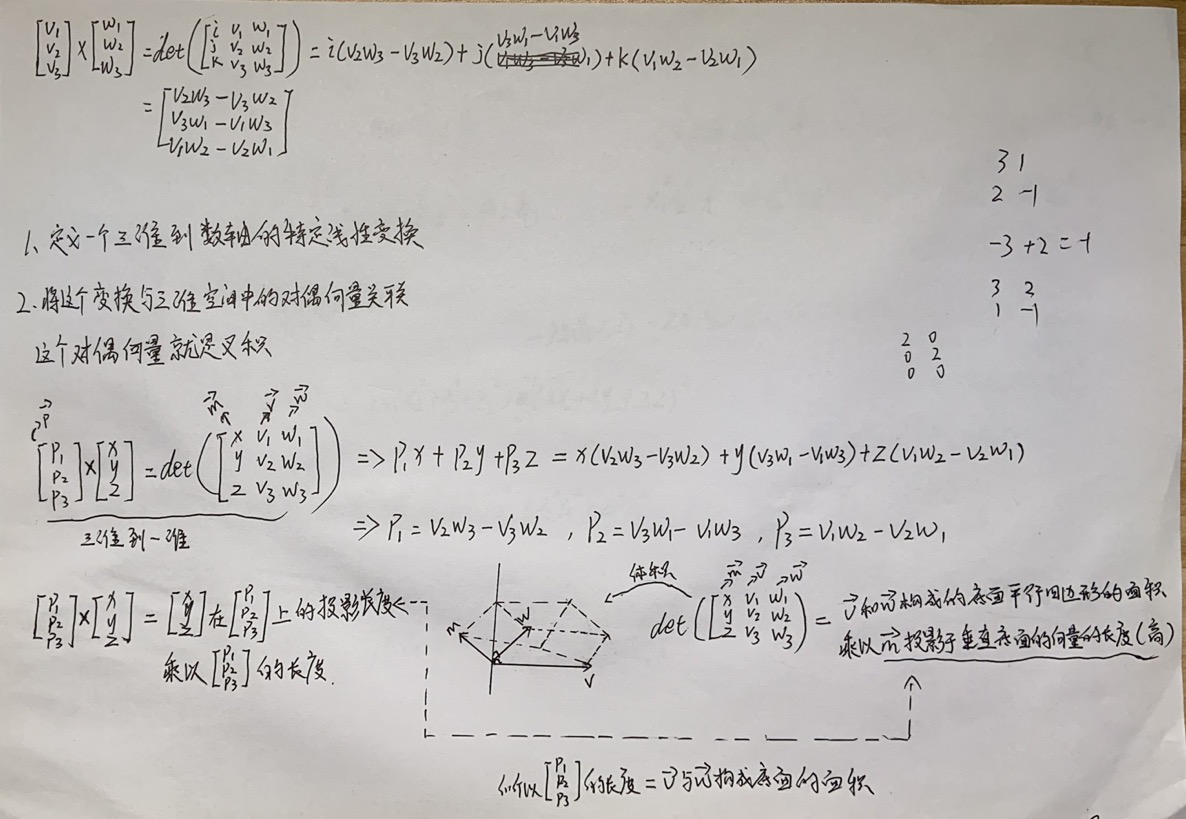 [v₁ v₂ v₃] × [w₁ w₂ w₃] = det([i v₁ w₁; j v₂ w₂; k v₃ w₃]) = i(v₂w₃ − v₃w₂) + j(v₃w₁ − v₁w₃) + k(v₁w₂ − v₂w₁)
= [v₂w₃ − v₃w₂; v₃w₁ − v₁w₃; v₁w₂ − v₂w₁]
3 1
2 -1
-3 + 2 = -1
3 2
1 -1
2 0
0 2
0 0
1、定义一个三维到数轴的特定线性变换
2、将这个变换与三维空间中的对偶向量关联
这个对偶向量就是叉积
p⃗ m⃗ v⃗ w⃗
[p₁ p₂ p₃] × [x y z] = det([x v₁ w₁; y v₂ w₂; z v₃ w₃]) => p₁x + p₂y + p₃z = x(v₂w₃ − v₃w₂) + y(v₃w₁ − v₁w₃) + z(v₁w₂ − v₂w₁)
三维到一维
=> p₁ = v₂w₃ − v₃w₂ , p₂ = v₃w₁ − v₁w₃ , p₃ = v₁w₂ − v₂w₁
[p₁ p₂ p₃] × [x y z] = [x y z] 在 [p₁ p₂ p₃] 上的投影长度
乘以 [p₁ p₂ p₃] 的长度.
m w v
体积
m⃗ v⃗ w⃗
det([x v₁ w₁; y v₂ w₂; z v₃ w₃]) = v⃗和w⃗构成的底面平行四边形的面积
乘以m⃗投影于垂直底面的向量的长度(高)
所以 [p₁ p₂ p₃] 的长度 = v⃗与w⃗构成底面的面积